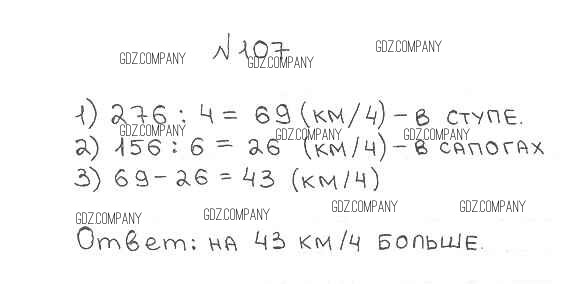 №107
GDZ.COMPANY GDZ.COMPANY GDZ.COMPANY
1) 276 : 4 = 69 (км/ч) – в ступе.
GDZ.COMPANY GDZ.COMPANY GDZ.COMPANY
2) 156 : 6 = 26 (км/ч) – в сапогах
3) 69 – 26 = 43 (км/ч)
GDZ.COMPANY GDZ.COMPANY GDZ.COMPANY GDZ.COMPANY
Ответ: на 43 км/ч больше.